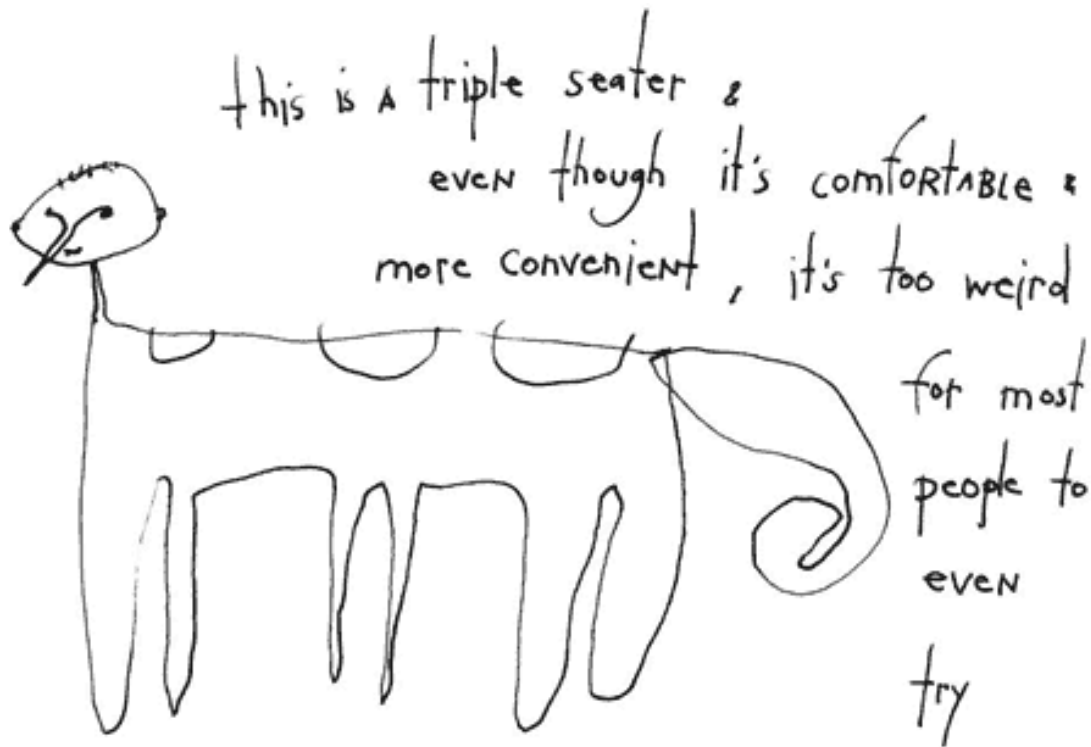 this is a triple seater &
even though it's comfortable &
more convenient, it's too weird
for most
people to
even
try